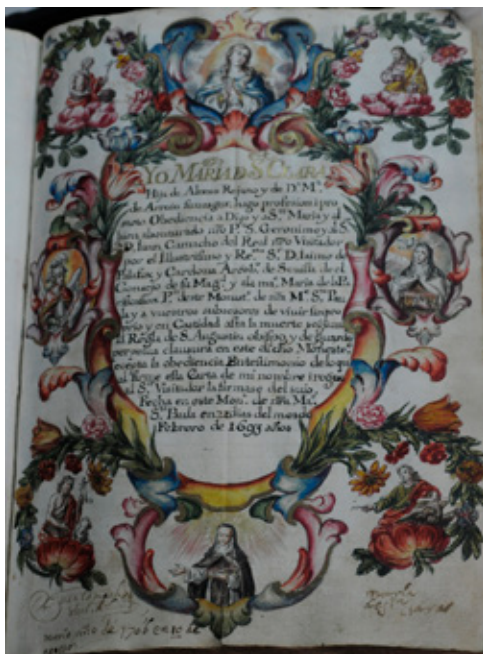 YO MARIA D S.ᵗᵃ CLARA
Hija de Alonso Rejano y de D.ª M.ª
de hago profesion i pro
meto Obediencia a Dios y a S.ᵗᵃ Maria y al
bien P. S. Geronimo y a S.ʳ
D. Juan Camacho del Real Visitador
por el Illustrissimo y Re.ᵐᵒ S.ʳ D. Jaimo de
Palafox y Cardona Arçob.ᵒ de Sevilla de el
Consejo de su Mag.ᵈ y a la ma.ᵉ Maria de la P.
P.ᵃ deste Monast.ᵒ de nr̃a M.ᵉ S.ᵗᵃ Pau
la y a vuestros subcesores de vivir sin pro
prio y en Castidad asta la muerte
la Regla de S. Augustin y de guardar
perpetua clausura en este dicho Monesterio
la obediencia. En testimonio de lo qu
esta Carta de mi nombre i rogue
al S.ʳ Visitador la firmase del suio
Fecha en este Mon.ᵒ de nr̃a M.ᵉ
S.ᵗᵃ Paula en dias del mes de
Febrero de 1699 años
murio año de 170 en 10 de